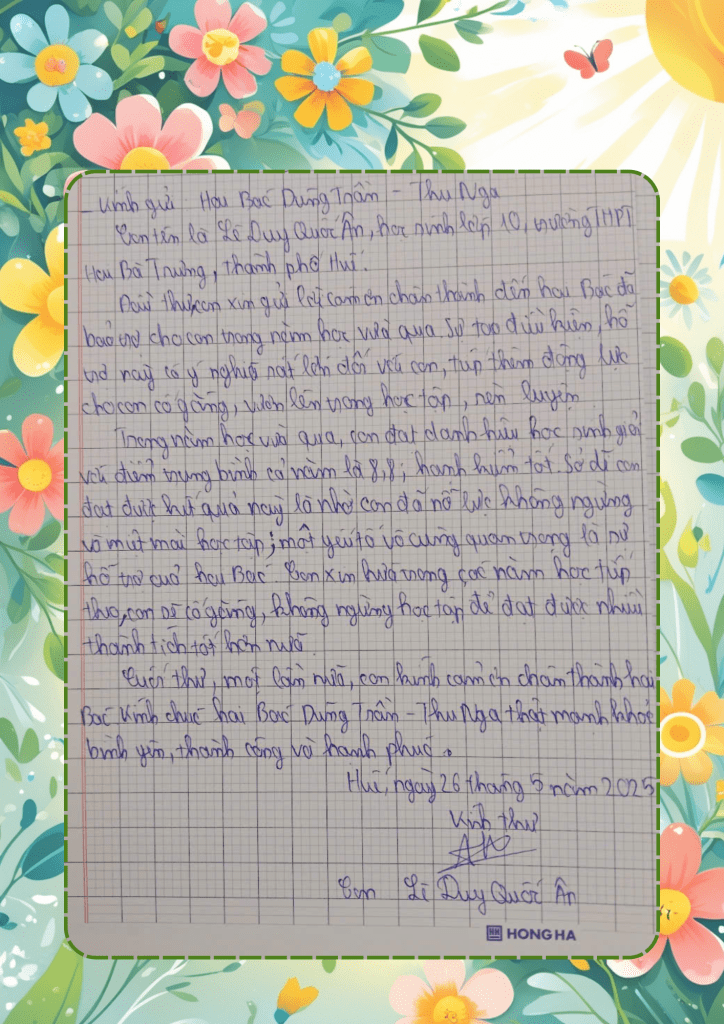 Kính gửi Hai Bác Dũng Trần - Thu Nga
Con tên là Lê Duy Quốc Ân, học sinh lớp 10, trường THPT
Hai Bà Trưng, thành phố Huế.
Đầu thư, con xin gửi lời cảm ơn chân thành đến hai Bác đã
bảo trợ cho con trong năm học vừa qua. Sự tạo điều kiện, hỗ
trợ này có ý nghĩa rất lớn đối với con, tiếp thêm động lực
cho con cố gắng, vươn lên trong học tập, rèn luyện
Trong năm học vừa qua, con đạt danh hiệu học sinh giỏi
với điểm trung bình cả năm là 8,8; hạnh kiểm tốt. Sở dĩ con
đạt được kết quả này là nhờ con đã nỗ lực không ngừng
và miệt mài học tập; một yếu tố vô cùng quan trọng là sự
hỗ trợ của hai Bác. Con xin hứa trong các năm học tiếp
theo, con sẽ cố gắng, không ngừng học tập để đạt được nhiều
thành tích tốt hơn nữa.
Cuối thư, một lần nữa, con kính cảm ơn chân thành hai
Bác. Kính chúc hai Bác Dũng Trần - Thu Nga thật mạnh khỏe
bình yên, thành công và hạnh phúc.
Huế, ngày 26 tháng 5 năm 2025
Kính thư
Con Lê Duy Quốc Ân
HONG HA